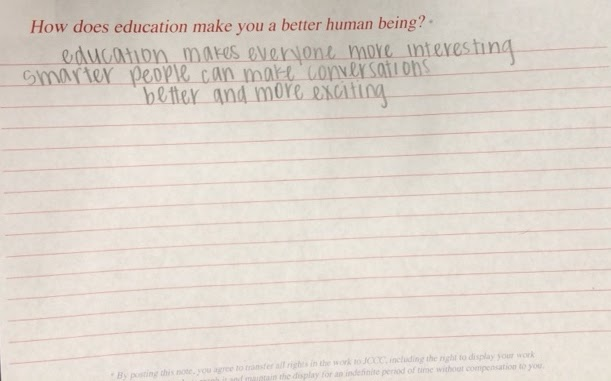 How does education make you a better human being? *
education makes everyone more interesting
smarter people can make conversations
better and more exciting
* By posting this note, you agree to transfer all rights in the work to JCCC, including the right to display your work
and maintain the display for an indefinite period of time without compensation to you.